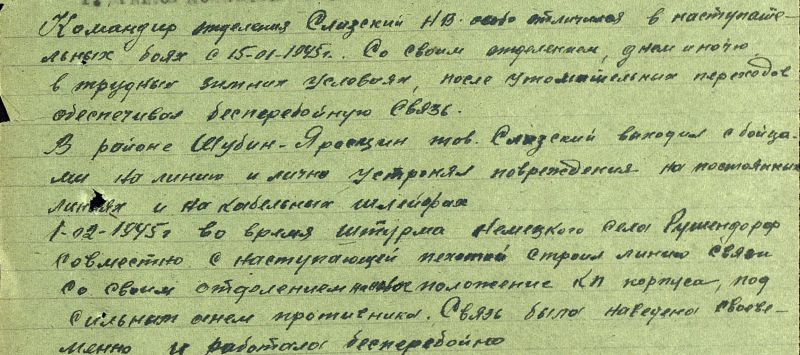 Командир отделения Слазский Н.В. особо отличился в наступате-
льных боях с 15-01-1945г. Со своим отделением, днем и ночю
в трудных зимних условиях, после утомительных переходов
обеспечивал бесперебойную связь.
В районе Шубин-Яроцин тов. Слазский выходил с бойца-
ми на линию и лично устронял повреждения на постоянных
линиях и на кабельных шлейфах
1-02-1945г во время штурма немецкого села Рушендорф
совместно с наступающей пехотой строил линию связи
со своим отделением положение КП корпуса, под
сильным огнем противника. Связь была наведена своевре-
менно и работала бесперебойно